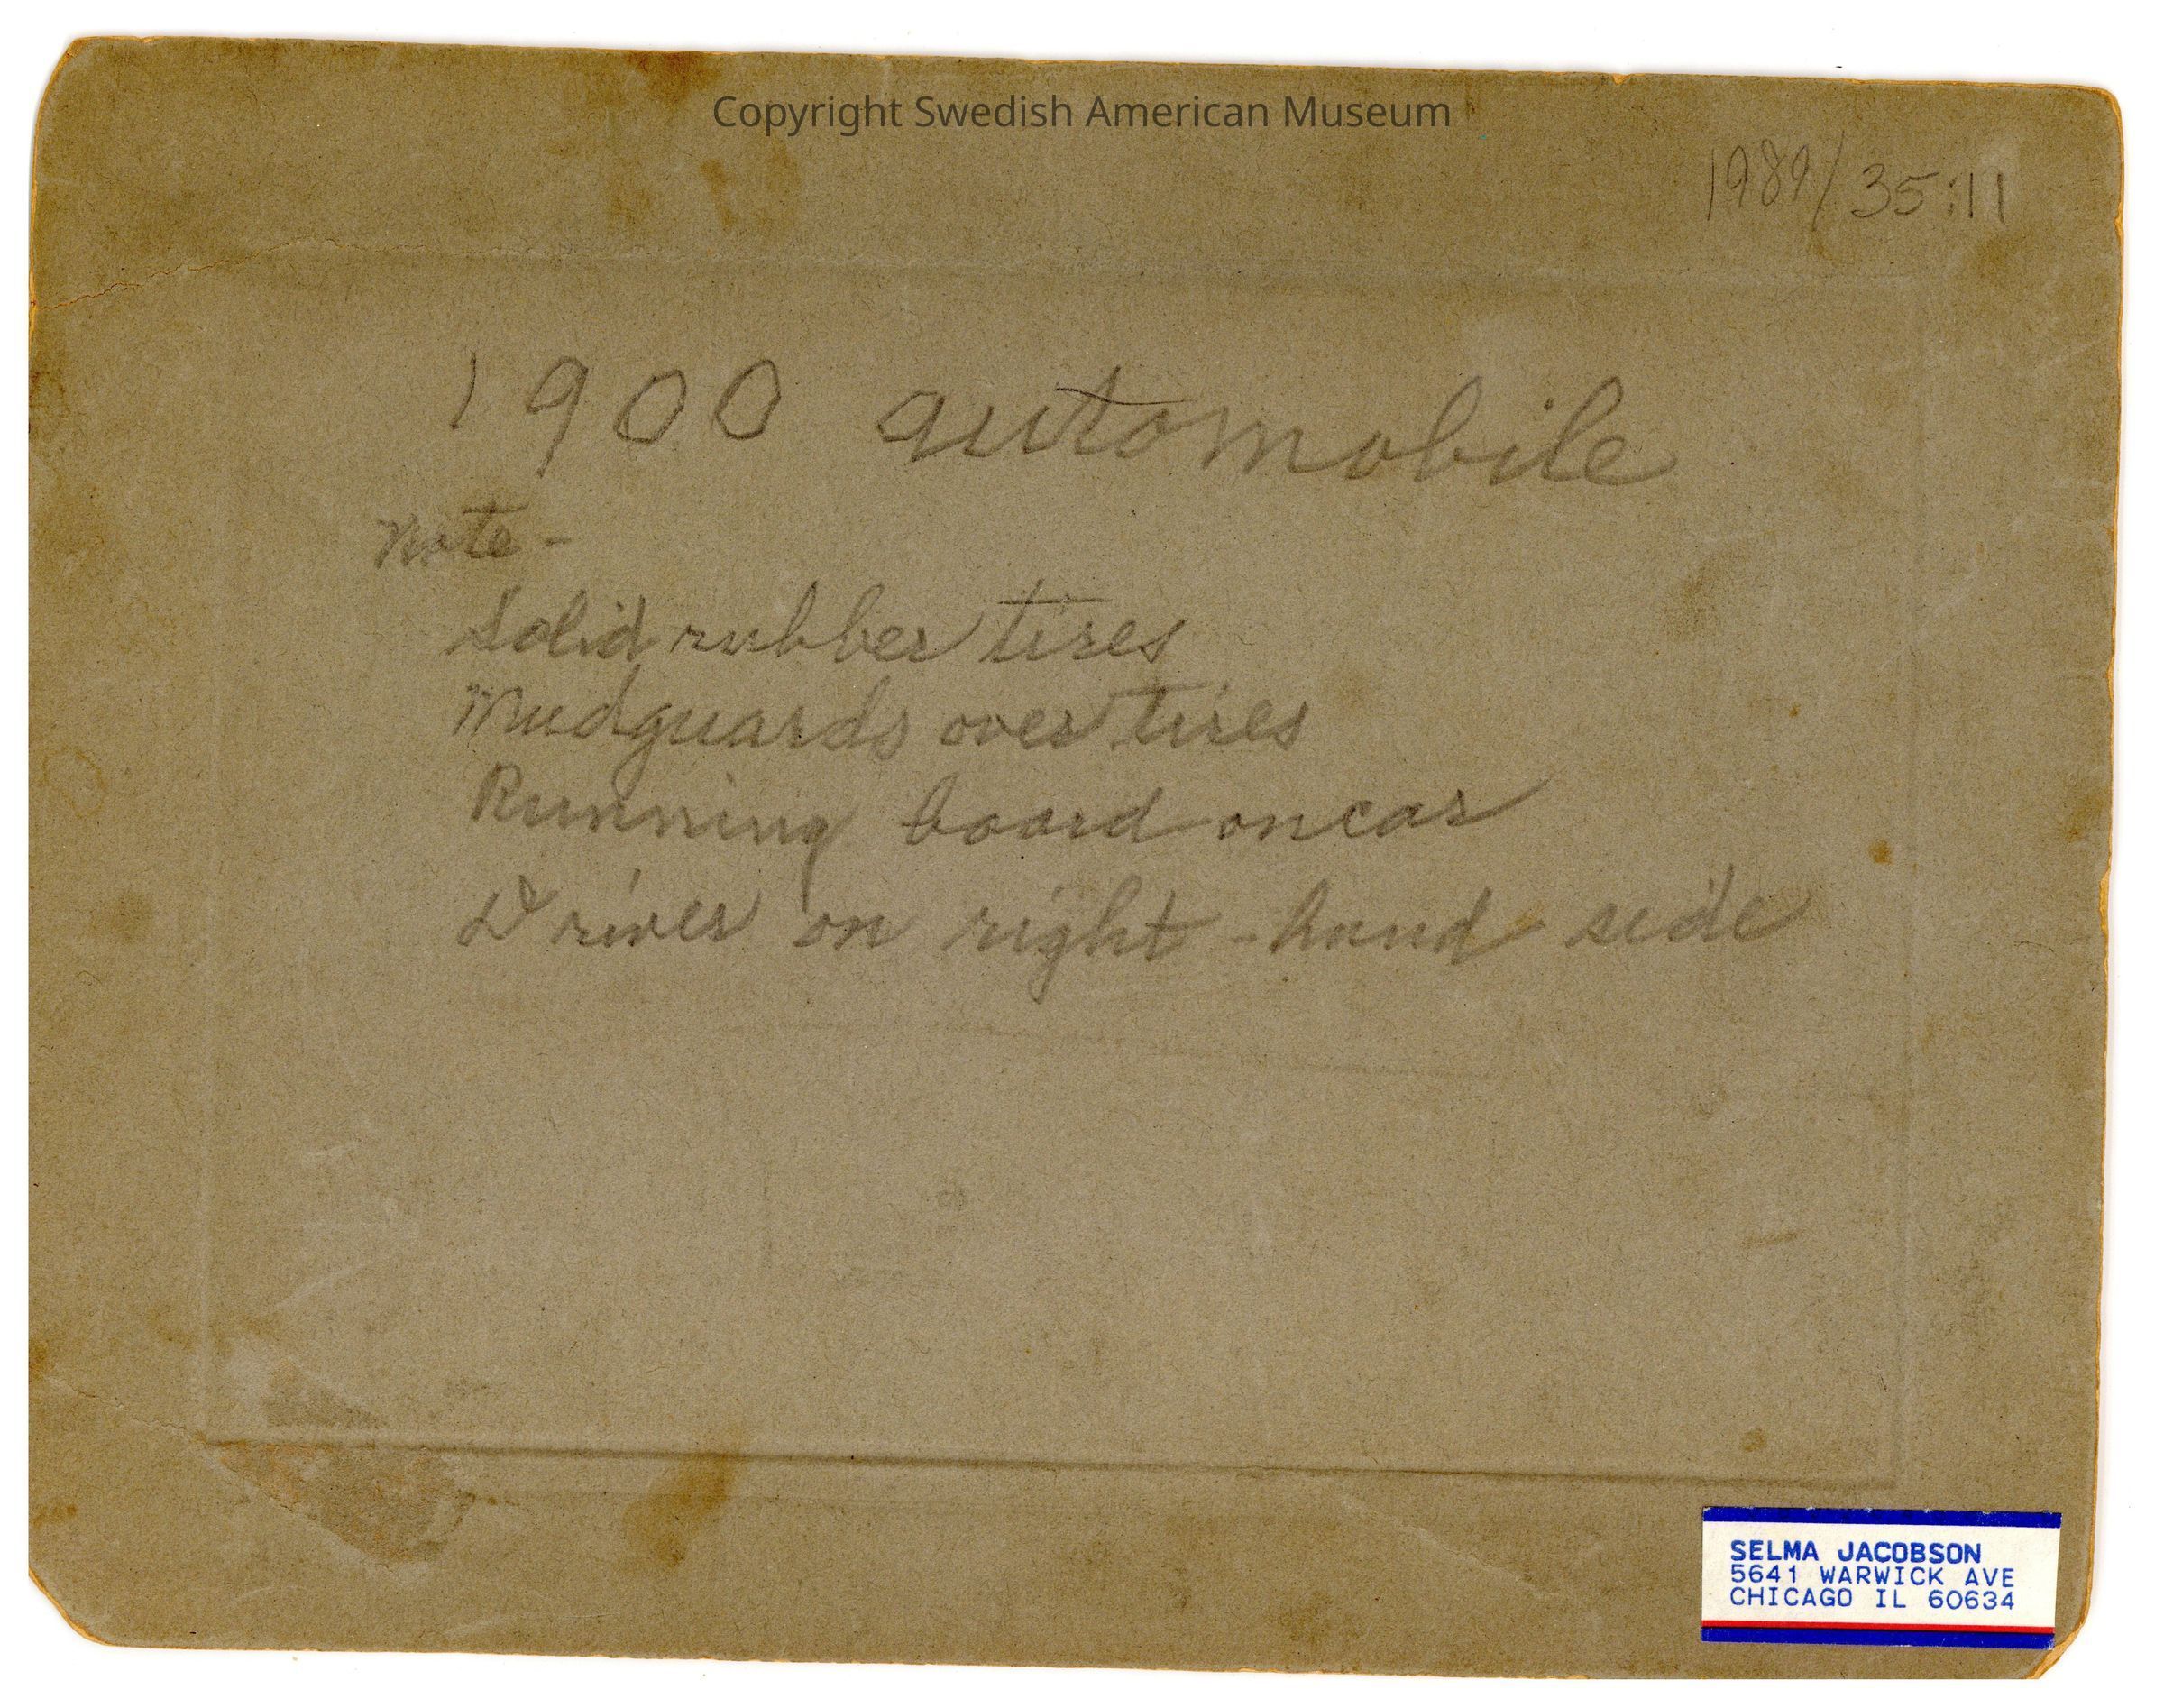 Copyright Swedish American Museum
1989/35:11
1900 automobile
Note-
Solid rubber tires
Mudguards over tires
Running board on car
Driver on right-hand side
SELMA JACOBSON
5641 WARWICK AVE
CHICAGO IL 60634